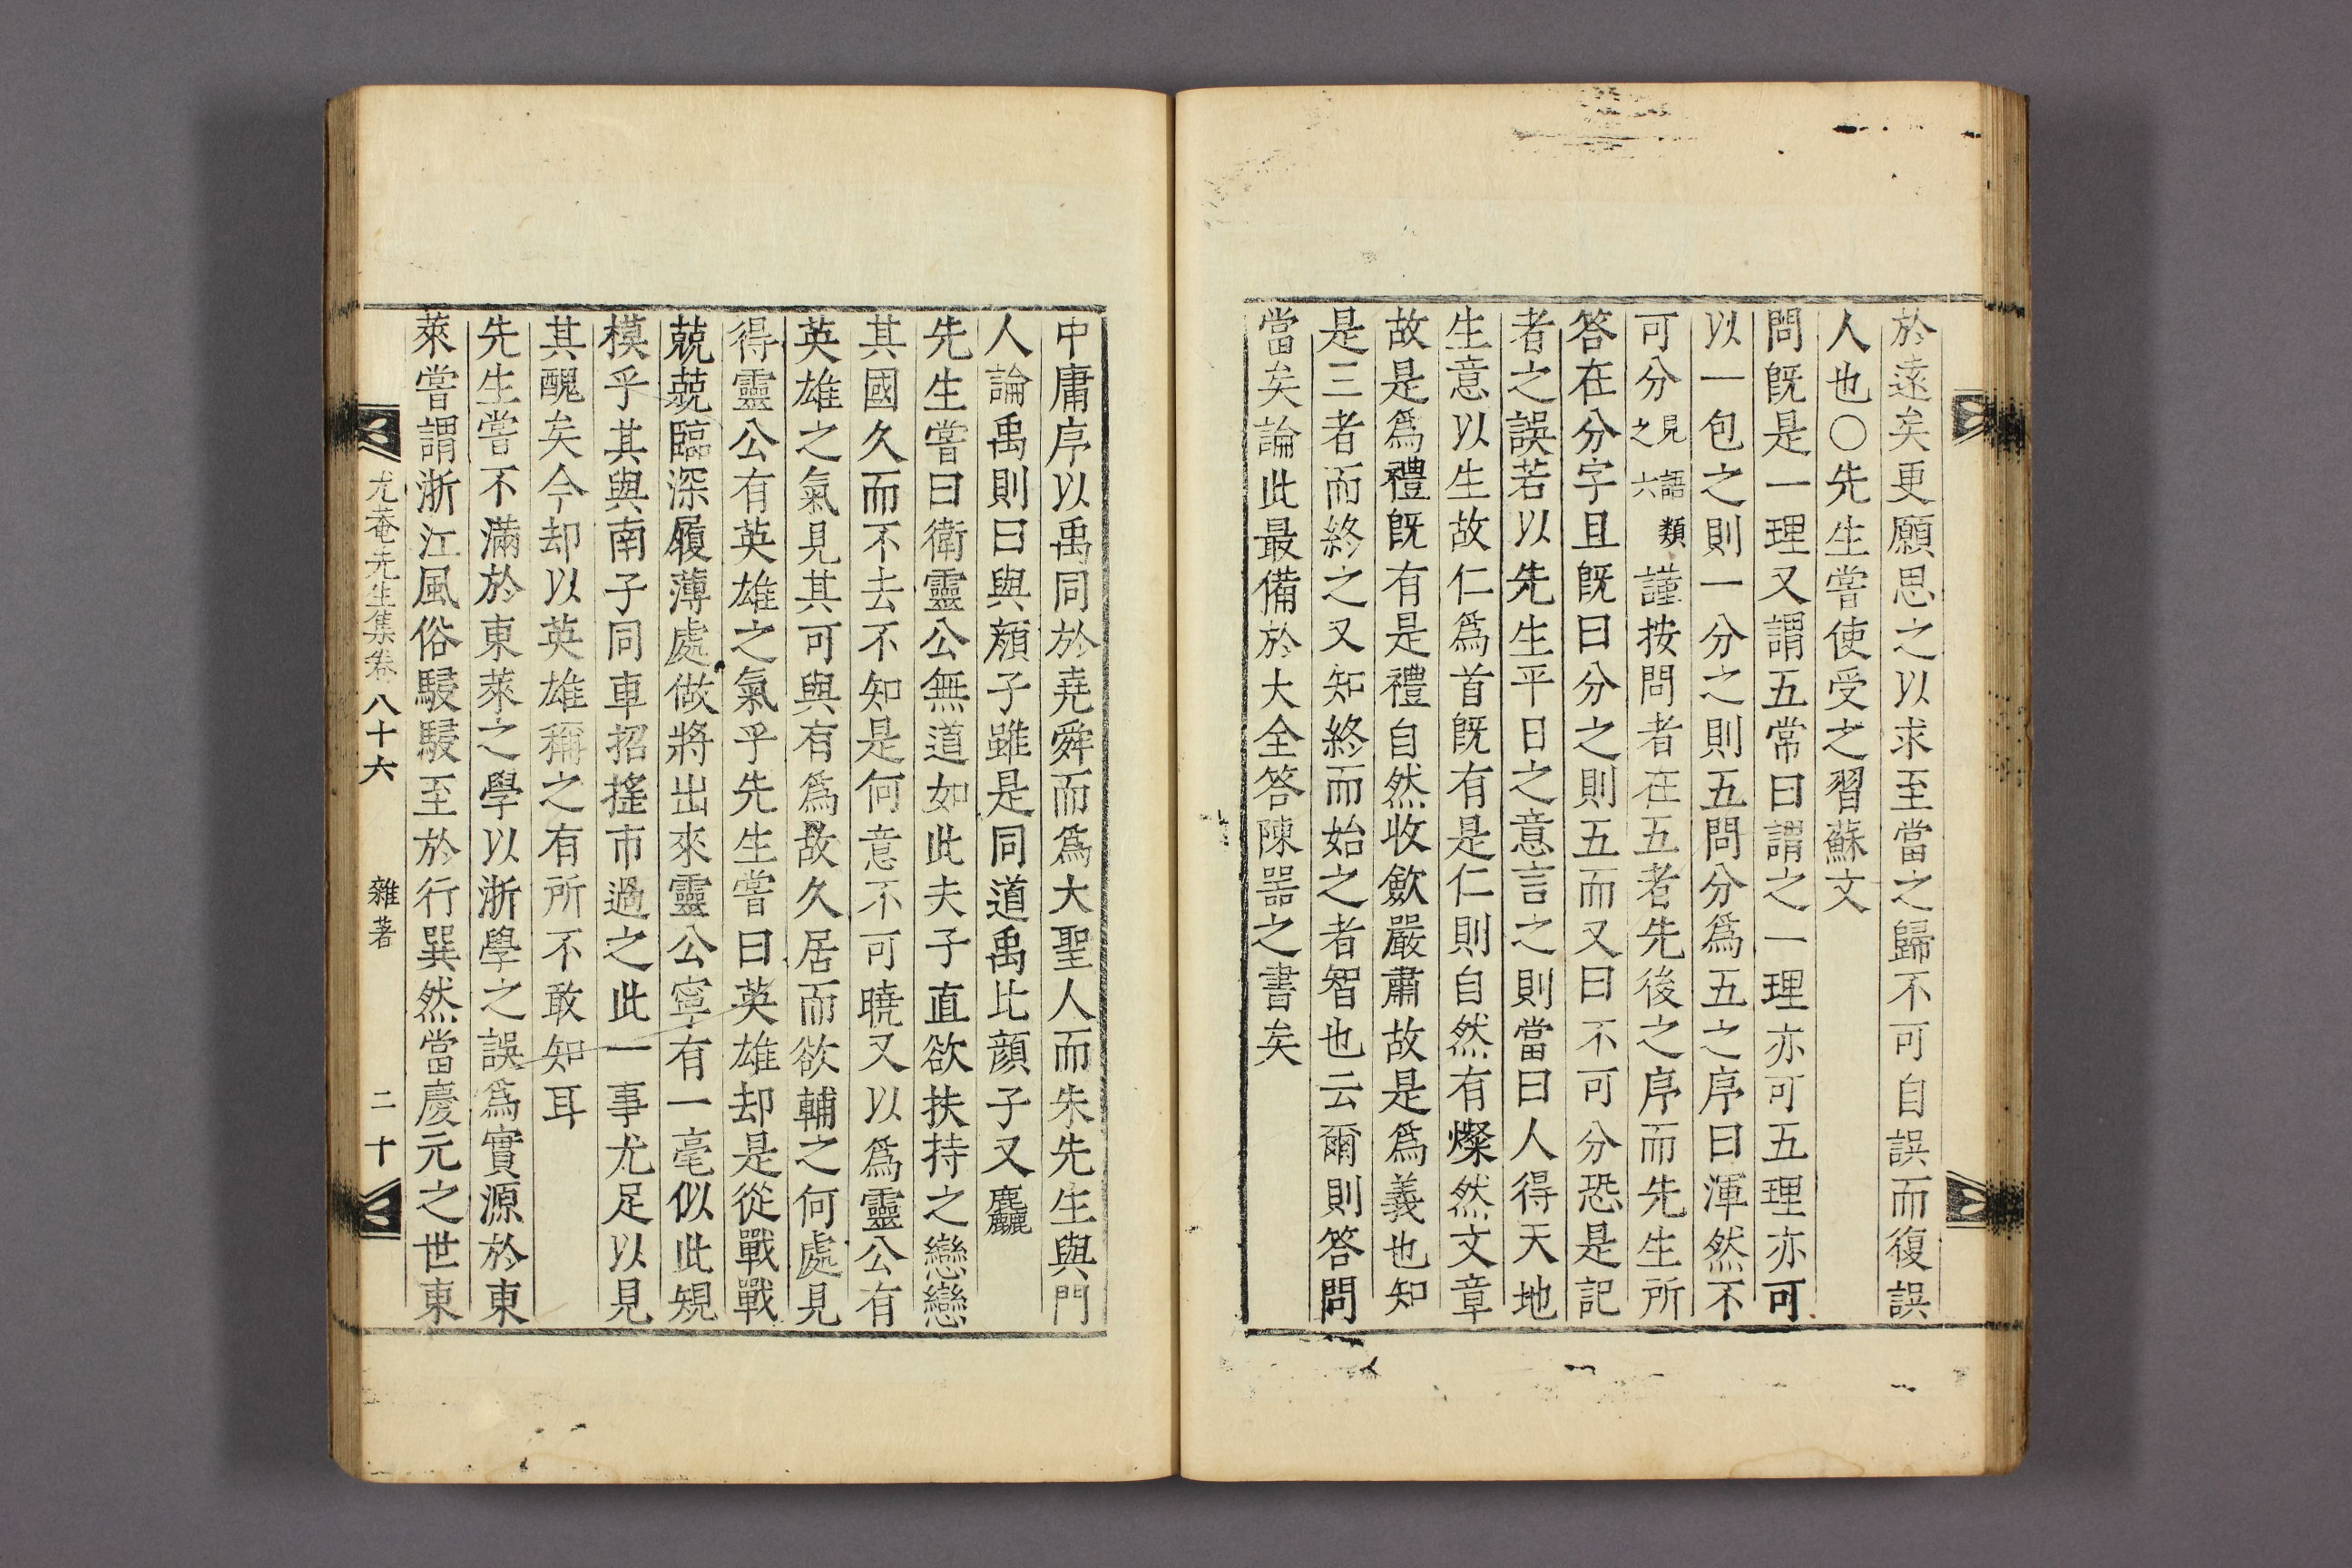 於遠矣更願思之以求至當之歸不可自誤而復誤
人也○先生嘗使受之習蘇文
問旣是一理又謂五常曰謂之一理亦可五理亦可
以一包之則一分之則五問分爲五之序曰渾然不
可分見語類之六謹按問者在五者先後之序而先生所
答在分字且旣曰分之則五而又曰不可分恐是記
者之誤若以先生平日之意言之則當曰人得天地
生意以生故仁爲首旣有是仁則自然有燦然文章
故是爲禮旣有是禮自然收斂嚴肅故是爲義也知
是三者而終之又知終而始之者智也云爾則答問
當矣論此最備於大全答陳器之書矣
中庸序以禹同於堯舜而爲大聖人而朱先生與門
人論禹則曰與顏子雖是同道禹比顏子又麤
先生嘗曰衛靈公無道如此夫子直欲扶持之戀戀
其國久而不去不知是何意不可曉又以爲靈公有
英雄之氣見其可與有爲故久居而欲輔之何處見
得靈公有英雄之氣乎先生嘗曰英雄却是從戰戰
兢兢臨深履薄處做將出來靈公寧有一毫似此䂓
模乎其與南子同車招搖市過之此一事尤足以見
其醜矣今却以英雄稱之有所不敢知耳
先生嘗不滿於東萊之學以浙學之誤爲實源於東
萊嘗謂浙江風俗駸駸至於行巽然當慶元之世東
尤菴先生集卷八十六 雜著 二十